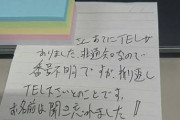 さん あてにTELが
ありました。非通知なので
番号不明ですが折り返し
TEL下さいとのことです。
お名前は聞き忘れました!!